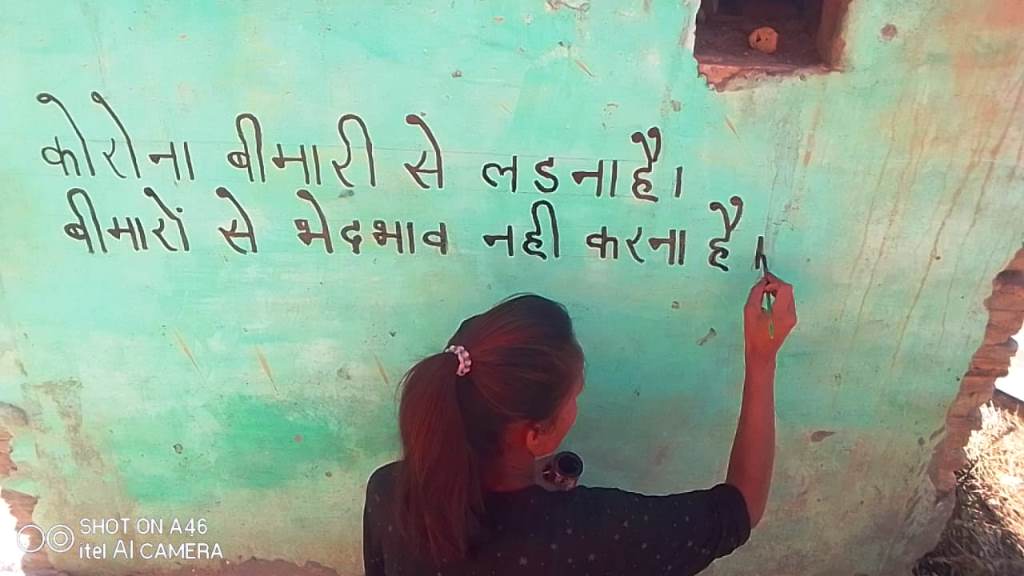 कोरोना बीमारी से लडना है।
बीमारों से भेदभाव नही करना है।
SHOT ON A46
itel AI CAMERA